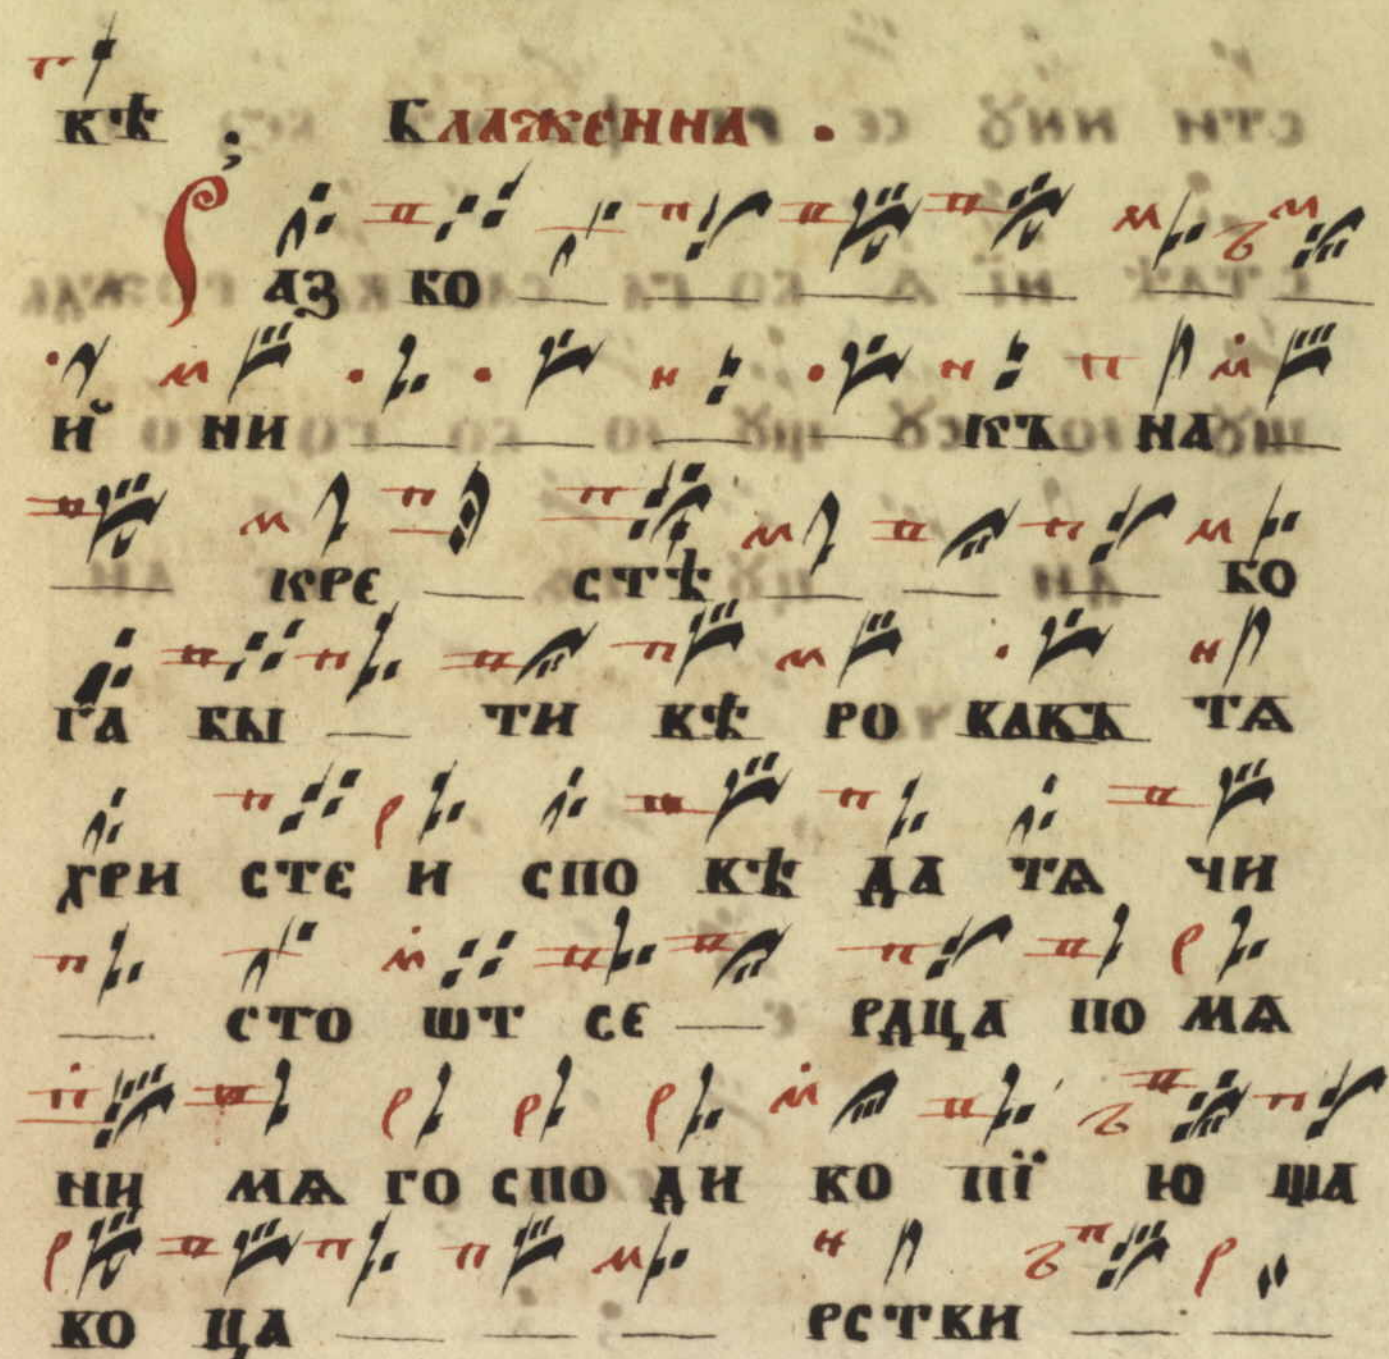 вѣ ; Блаженна .
Разбо
й ни къ на
кре стѣ бо
га бы ти вѣ ро вавъ тѧ
хри сте и спо вѣ да тѧ чи
сто ѿт се рдца по мѧ
ни мѧ го спо ди во пї ю ща
ко ца рстви